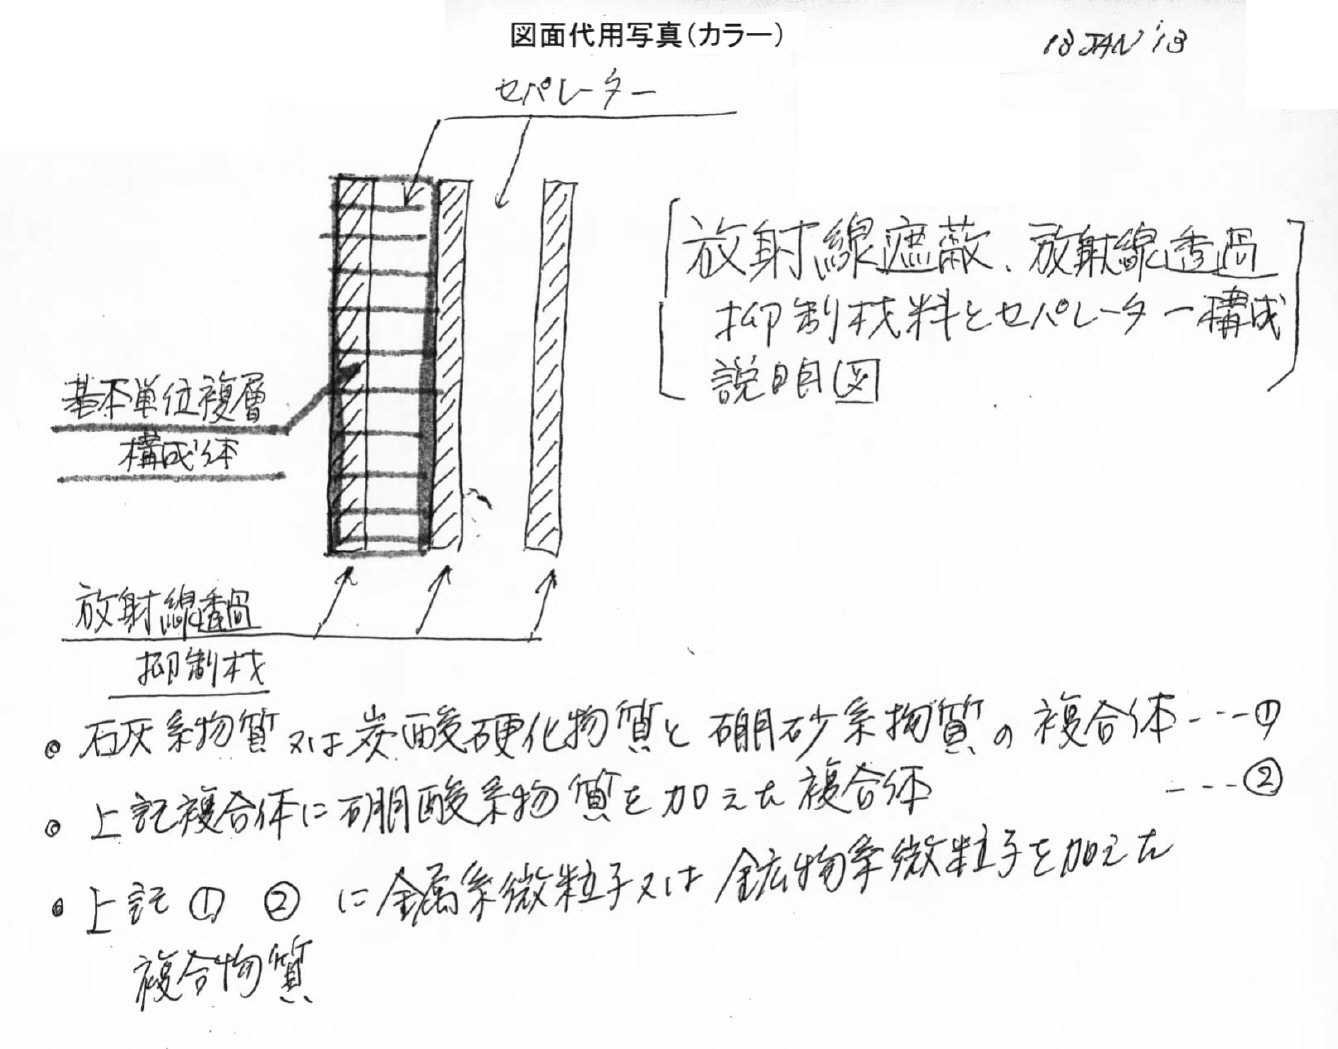 図面代用写真(カラー)
13 JAN '13
セパレーター
放射線遮蔽、放射線透過
抑制材料とセパレーター構成
説明図
基本単位複層
構成体
放射線透過
抑制材
◎ 石灰系物質又は炭酸硬化物質と硼砂系物質の複合体---①
◎ 上記複合体に硼酸系物質を加えた複合体 ---②
◎ 上記 ① ② に金属系微粒子又は鉱物系微粒子を加えた
複合物質